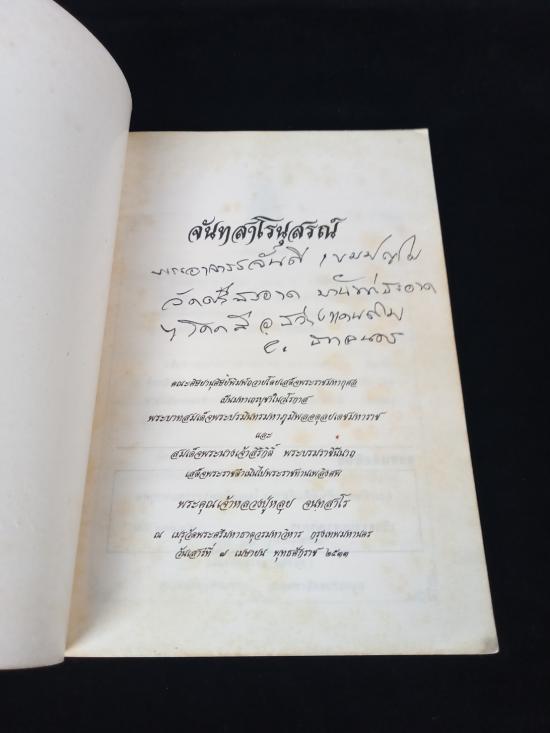 จันทสาโรนุสรณ์
พระอาจารย์สันติ
วัด
คณะศิษยานุศิษย์พิมพ์ถวายโดยเสด็จพระราชกุศล
เป็นมหาเถรบูชาในโอกาส
พระบาทสมเด็จพระปรมินทรมหาภูมิพลอดุลยเดชมหาราช
และ
สมเด็จพระนางเจ้าสิริกิติ์ พระบรมราชินีนาถ
เสด็จพระราชดำเนินไปพระราชทานเพลิงศพ
พระคุณเจ้าหลวงปู่หลุย จนฺทสาโร
ณ เมรุวัดพระศรีมหาธาตุวรมหาวิหาร กรุงเทพมหานคร
วันเสาร์ที่ ๗ เมษายน พุทธศักราช ๒๕๓๓